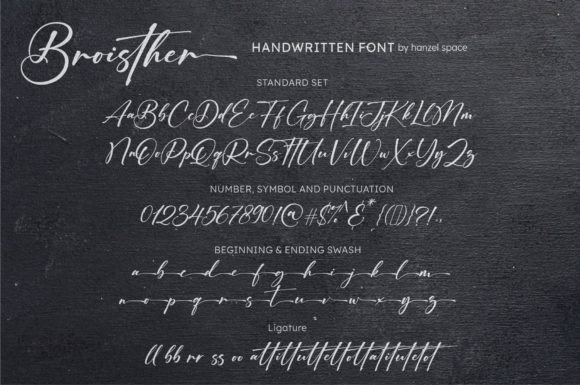 Broisther
HANDWRITTEN FONT by hanzel space
STANDARD SET
AaBbCcDdEeFfGgHhIiJjKkLlMm
NnOoPpQqRrSsTtUuVvWwXxYyZz
NUMBER, SYMBOL AND PUNCTUATION
01234567890!@#$%^&*{([])}?!.,
BEGINNING & ENDING SWASH
a b c d e f g h i j k l m
n o p q r s t u v w x y z
Ligature
ll bb rr ss oo